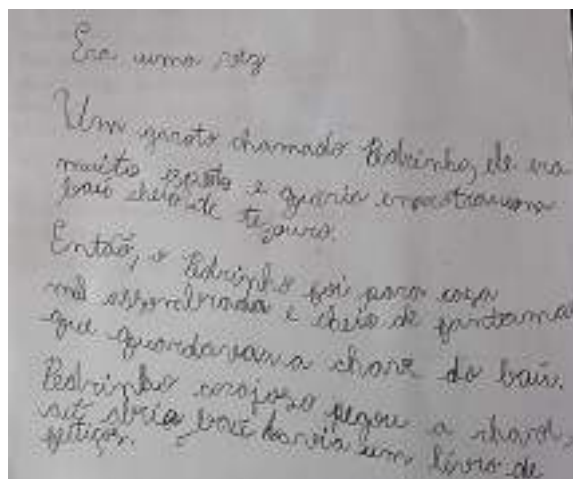 Era uma vez
Um garoto chamado Pedrinho, ele era
muito esperto e queria encontrar um
baú cheio de tezouro.
Então, o Pedrinho foi para casa
mal assombrada e cheio de fantama
que guardavam a chave do baú.
Pedrinho corajoso pegou a chave,
abriu baú havia um livro de
feitiços.